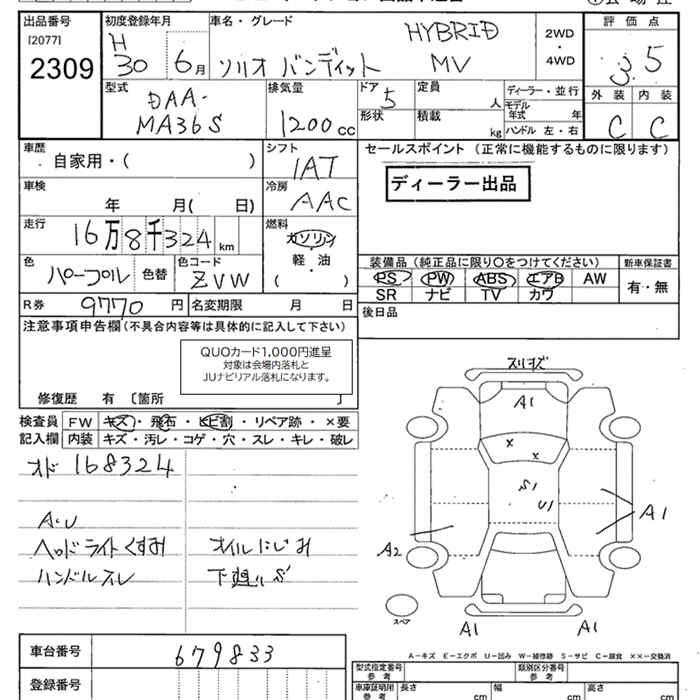 出品番号
[2077]
2309
初度登録年月
H
30 6月
車名・グレード
HYBRID
ソリオ バンディット MV
2WD
・
4WD
評価点
3.5
外装 内装
C C
型式
DAA-
MA36S
排気量
1200cc
ドア
5
形状
定員
人
積載
kg
ディーラー・並行
モデル
年式 年
ハンドル 左・右
車歴
自家用・( )
シフト
IAT
車検
年 月( 日)
冷房
AAC
走行
16万8千324km
燃料
ガソリン
軽・油
( )
色
パープル
色替
色コード
ZVW
R券
9770円
名変期限 月 日
セールスポイント (正常に機能するものに限ります)
ディーラー出品
装備品 (純正品に限り○をつけてください)
PS PW ABS エアB AW
SR ナビ TV カワ
新車保証書
有・無
後日品
注意事項申告欄 (不具合内容等は具体的に記入して下さい)
QUOカード1,000円進呈
対象は会場内落札と
JUナビリアル落札になります。
修復歴 有 〔箇所 〕
検査員
記入欄
FW キズ・飛石・ヒビ割・リペア跡・×要
内装 キズ・汚レ・コゲ・穴・スレ・キレ・破レ
オド 168324
A.U
ヘッドライトくすみ
ハンドルスレ
オイルにじみ
下廻りS
スリキズ
A1
×
×
S1
U1
A1
A2
スペア
A1
A1
A-キズ E-エクボ U-凹み W-補修跡 S-サビ C-腐食 ××-交換済
車台番号
679833
登録番号
型式指定番号
参考
類別区分番号
参考
車庫証明用
参考
長さ
cm
幅
cm
高さ
cm